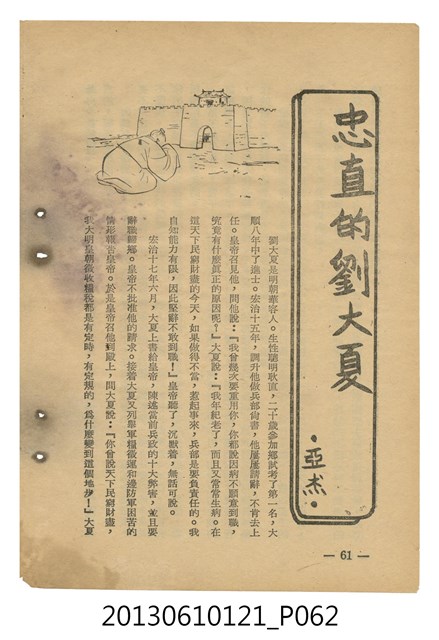 忠直的劉大夏
·亞杰·
劉大夏是明朝華容人。生性聰明耿直，二十歲參加鄉試考了第一名，天
順八年中了進士。宏治十五年，調升他做兵部尚書，他屢屢請辭，不肯去上
任。皇帝召見他，問他說：『我曾幾次要重用你，你都說因病不願意到職，
究竟有什麼眞正的原因呢？』大夏說：『我年紀老了，而且又常常生病。在
這天下民窮財盡的今天，如果做得不當，惹起事來，兵部是要負責任的。我
自知能力有限，因此堅辭不敢到職！』皇帝聽了，沉默着，無話可說。
宏治十七年六月，大夏上書給皇帝，陳述當前兵政的十大弊害，並且要
辭職歸鄉。皇帝不批准他的請求。接着大夏又列舉軍糧徵運和邊防軍困苦的
情形報告皇帝。於是皇帝召他到殿上，問大夏說：『你曾說天下民窮財盡，
我大明皇朝徵收糧稅都是有定時，有定規的，爲什麼變到這個地步！』大夏
— 61 —
20130610121_P062